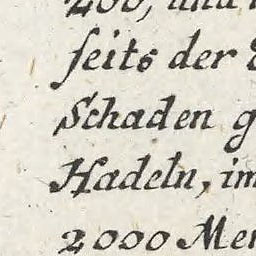 200, und
ſeits der
Schaden g
Hadeln, im
2000 Men